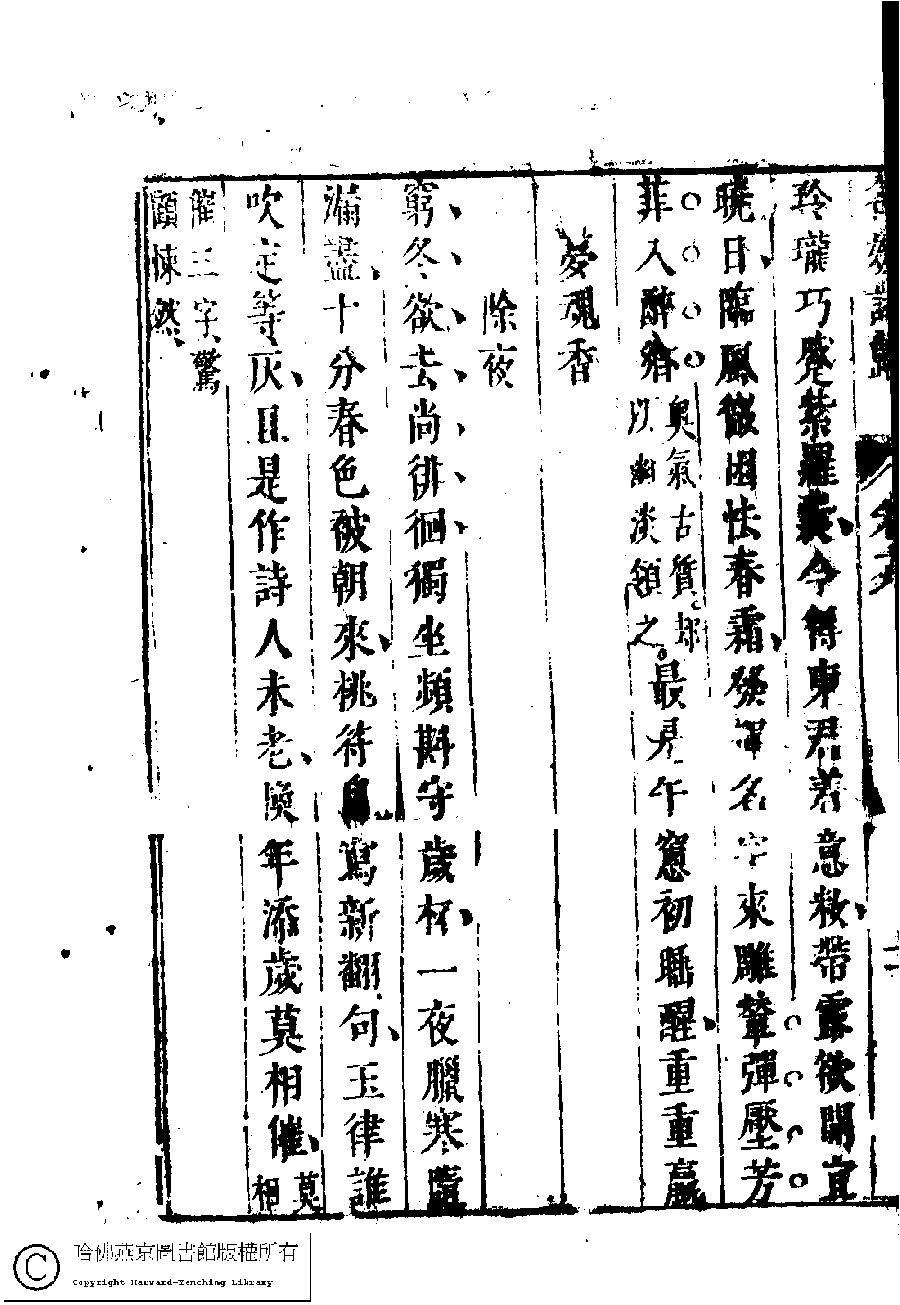 玲瓏巧蹙紫羅裳今得東君着意粧帶露欲開宜
曉日臨風微困怯春霜發揮名字來雕輦彈壓芳
菲入醉鄉奧氣古質却以幽淡領之最是午窻初睡醒重重贏
夢魂香
除夜
窮冬欲去尚徘徊獨坐頻斟守歲杯一夜臘寒隨
漏盡十分春色被朝來桃待自寫新翻句玉律誰
吹定等灰且是作詩人未老換年添歲莫相催莫相
催三字驚
顧悚然
哈佛燕京圖書館版權所有
Copyright Harvard-Yenching Library